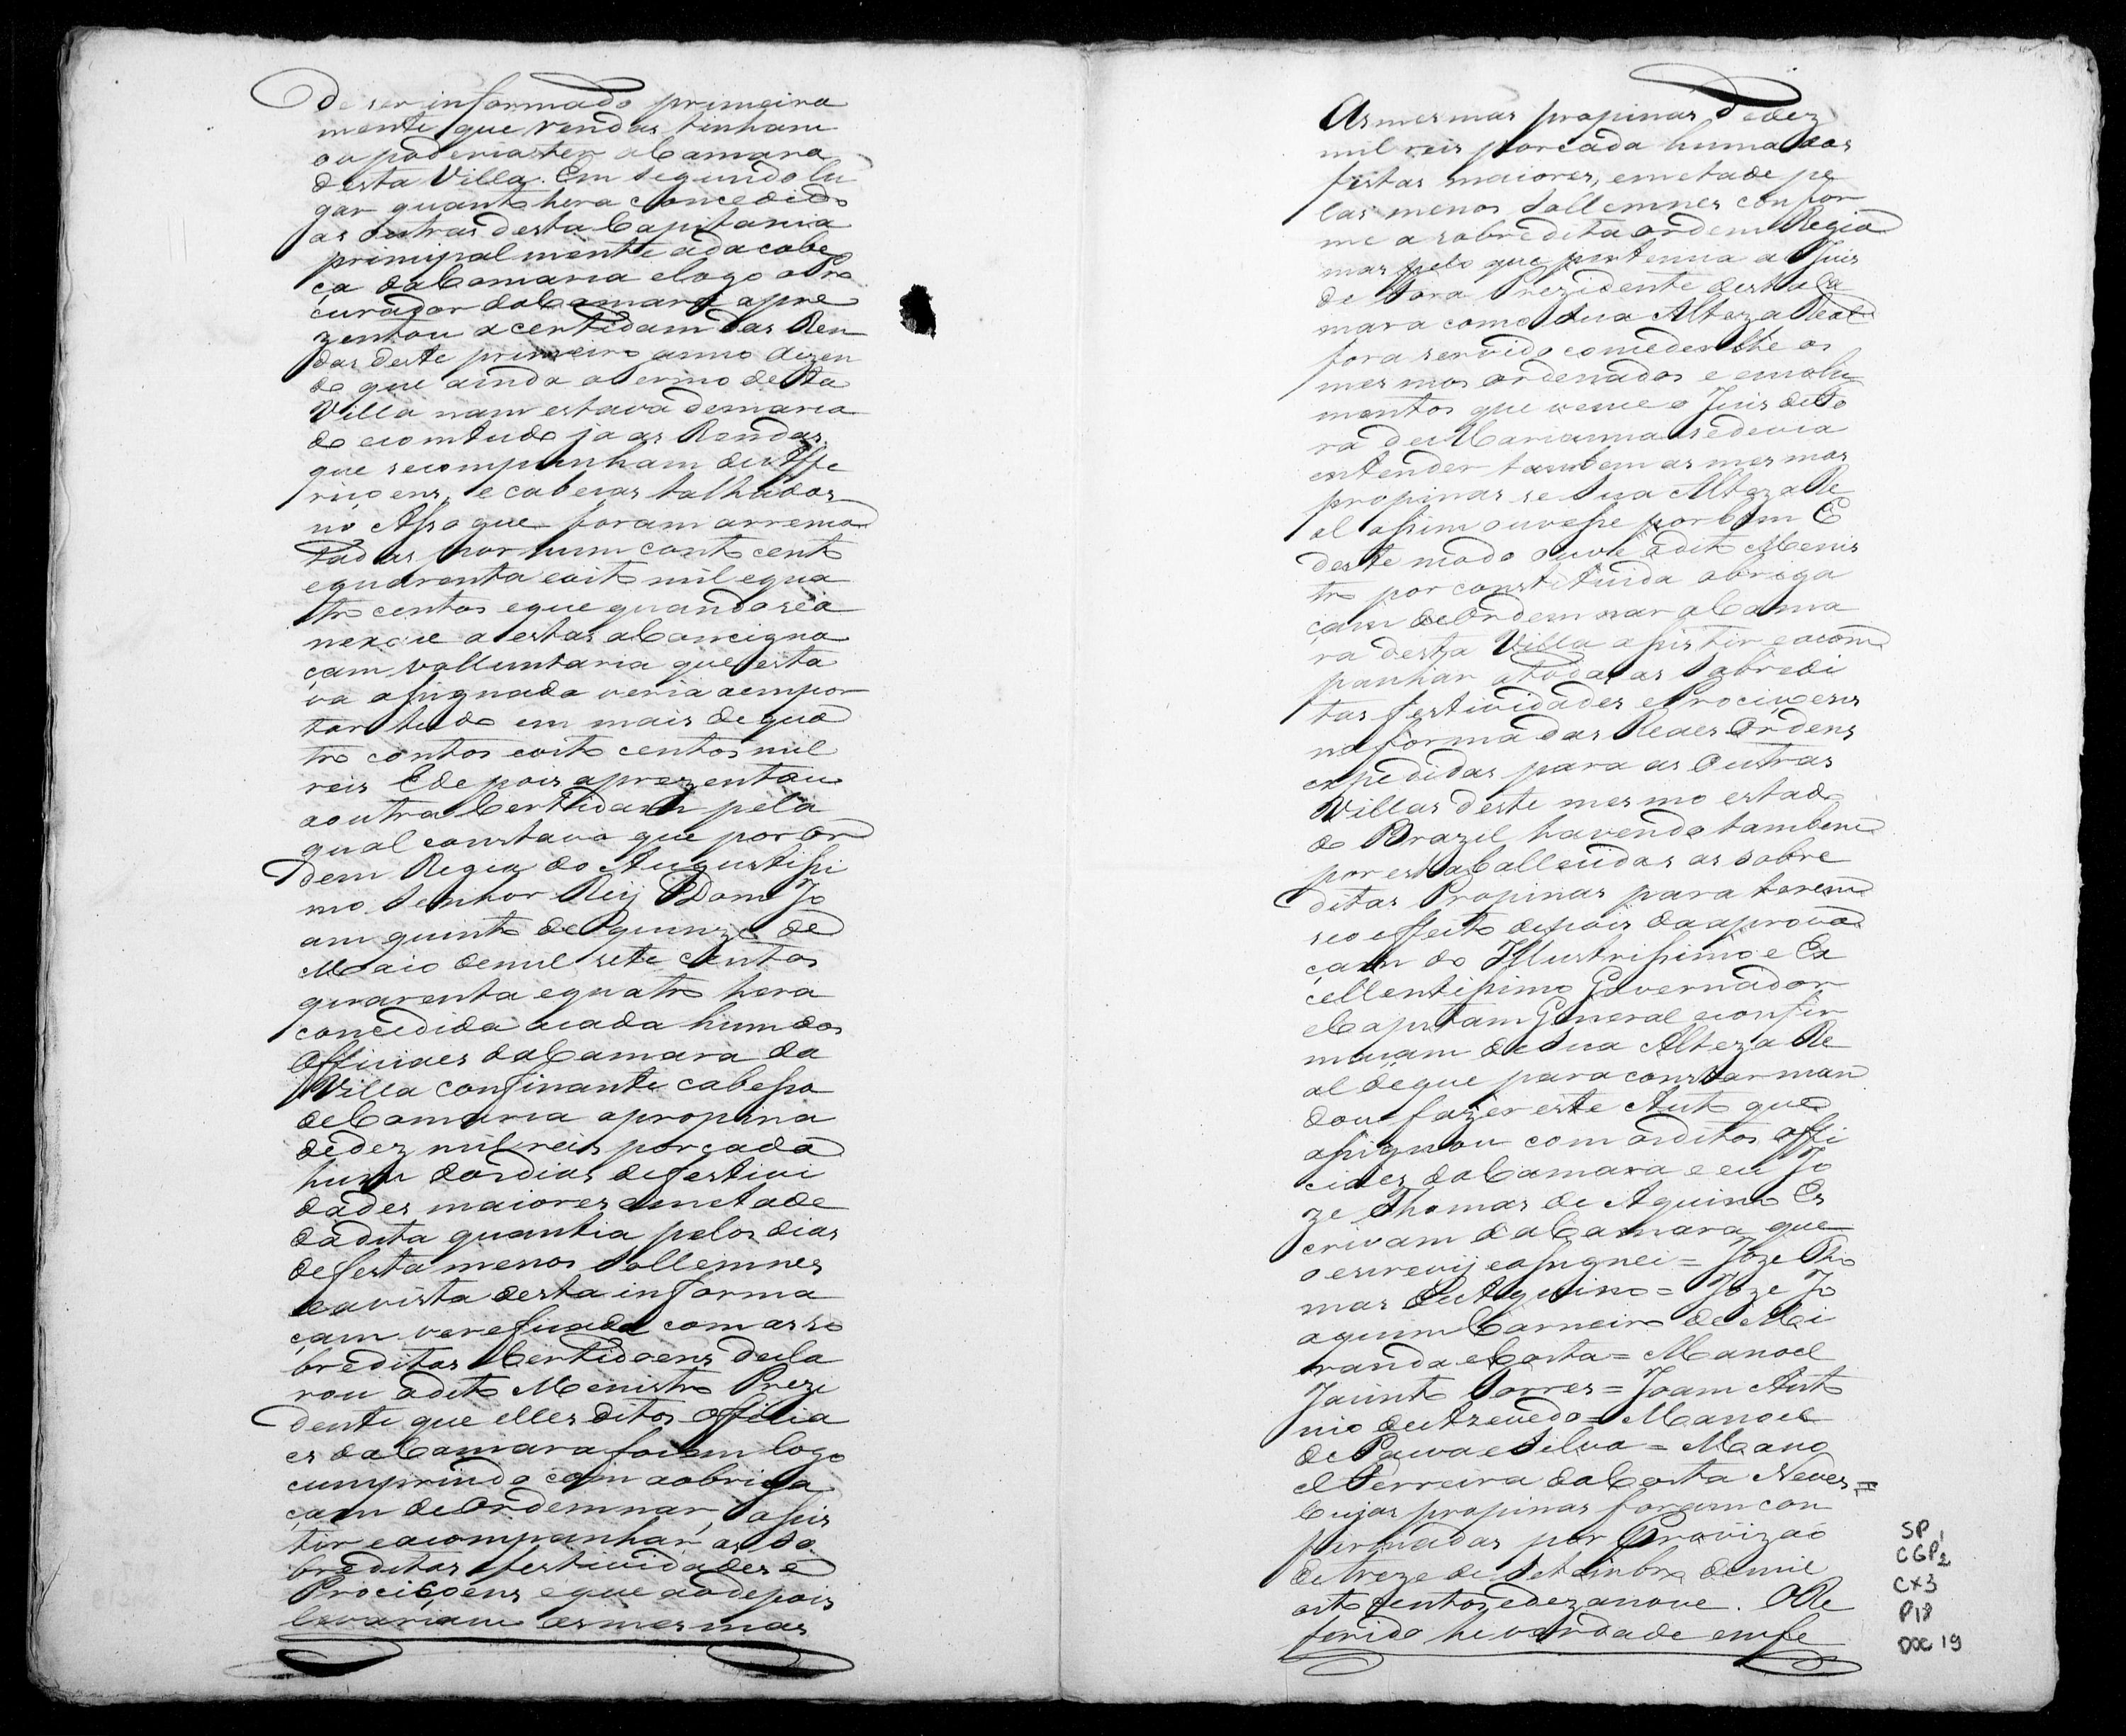 de ser informado primeira
mente que rendas tinham
ou poderia ter a Camara
desta Villa. Em segundo lu
gar quanto hera concedido
as outras desta Capitania
principalmente a da cabe
ça da Comarca e logo o Pro
curador da Camara apre
zentou a certidam das Ren
das deste primeiro anno dizen
do que ainda o termo desta
Villa nam estava demarca
do e comtudo ja as Rendas
que se compunham de Affe
riçoens, e cabeças talhadas
no Assogue foram arrema
tadas por hum conto cento
e quarenta e oito mil e qua
tro centos e que quando se a
nexace a estas a Concigna
çam volluntaria que esta
va assignada veria a empor
tar tudo em mais de qua
tro contos e oito centos mil
reis E depois aprezentou
a outra Certidam pela
qual constava que por Or
dem Regia do Augustissi
mo Senhor Reij Dom Jo
am quinto de quinze de
Maio de mil sete centos
quarenta e quatro hera
concedida a cada hum dos
Officiaes da Camara da
Villa confinante cabessa
de Comarca a propina
de dez mil reis por cada
hum dos dias de festivi
dades maiores e metade
da dita quantia pelos dias
de festa menos Sollemnes
e a vista desta informa
çam vereficada com as so
breditas Certidoens decla
rou o dito Menistro Prezi
dente que elles ditos Officia
es da Camara fosem logo
cumprindo com a obriga
çam de Ordemnar, assis
tir e acompanhar as so
breditas festividades e
Prociçoens e que ao depois
levariam as mesmas
As mesmas propinas de dez
mil reis por cada huma das
festas maiores, e metade pe
las menos Sollemnes confor
me a sobredita ordem Regia
mas pelo que pertencia ao Juis
de Fora Prezidente desta Ca
mara como Sua Alteza Real
fora servido conceder lhe os
mesmos ordenados e emolu
mentos que vence o Juis de Fo
ra de Marianna se devia
entender tambem as mesmas
propinas se Sua Alteza Re
al assim ouvesse por bem E
deste modo ouve o dito Menis
tro por constituida a obriga
çam de Ordemnar a Cama
ra desta Villa assistir e acom
panhar a todas as Sobredi
tas festividades e Prociçoens
na forma das Reaes Ordens
expedidas para as Outras
Villas deste mesmo estado
do Brazil havendo tambem
por estaballecidas as sobre
ditas Propinas para terem
seo effeito depois da aprova
çam do Illustrissimo e Ex
cellentissimo Governador
e Capitam General e confir
maçam de Sua Alteza Re
al de que para constar man
dou fazer este Auto que
assignou com os ditos offi
ciaes da Camara e eu Jo
ze Thomas de Aquino Es
crivam da Camara que
o escrevij e assignei = Joze Tho
mas de Aquino = Joze Jo
aquim Carneiro de Mi
randa e Costa = Manoel
Jacinto Torres = Joam Anto
nio de Azevedo = Manoel
de Paiva e Silva = Mano
el Ferreira da Costa Neves =
Cujas propinas foram con
firmadas por Provizaõ
de treze de Setembro de mil
oito centos e dezanove. O Re
ferido he verdade em fe
SP 1
CGP2
CX3
P18
DOC 19